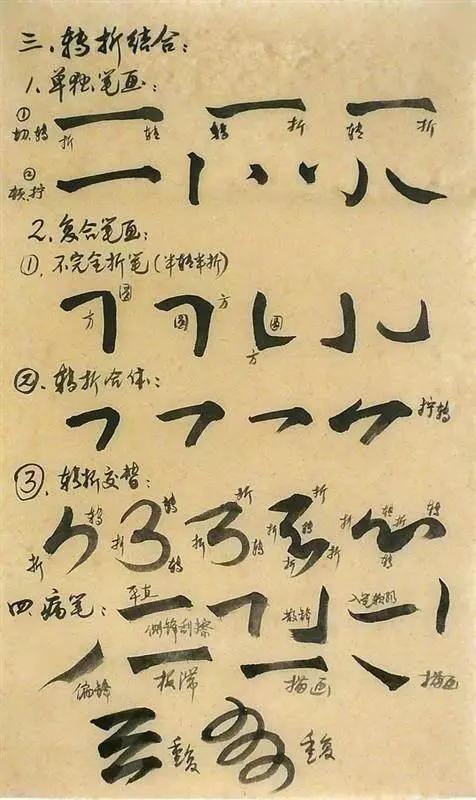 三、转折结合：
1.单独笔画：
① 切.转 折 转 转 折 转 折
② 顿.拧
2.复合笔画：
①.不完全折笔（半转半折）
方 圆 圆 方 圆 方
②.转折合体：
拧转
③.转折交替：
折 转 折 转 转 折 折 转 折 折 转 折 折 折 转 折 转 转
四.病笔：
平直 侧锋刮擦 散锋
偏锋 板滞 描画 描画
重复 重复